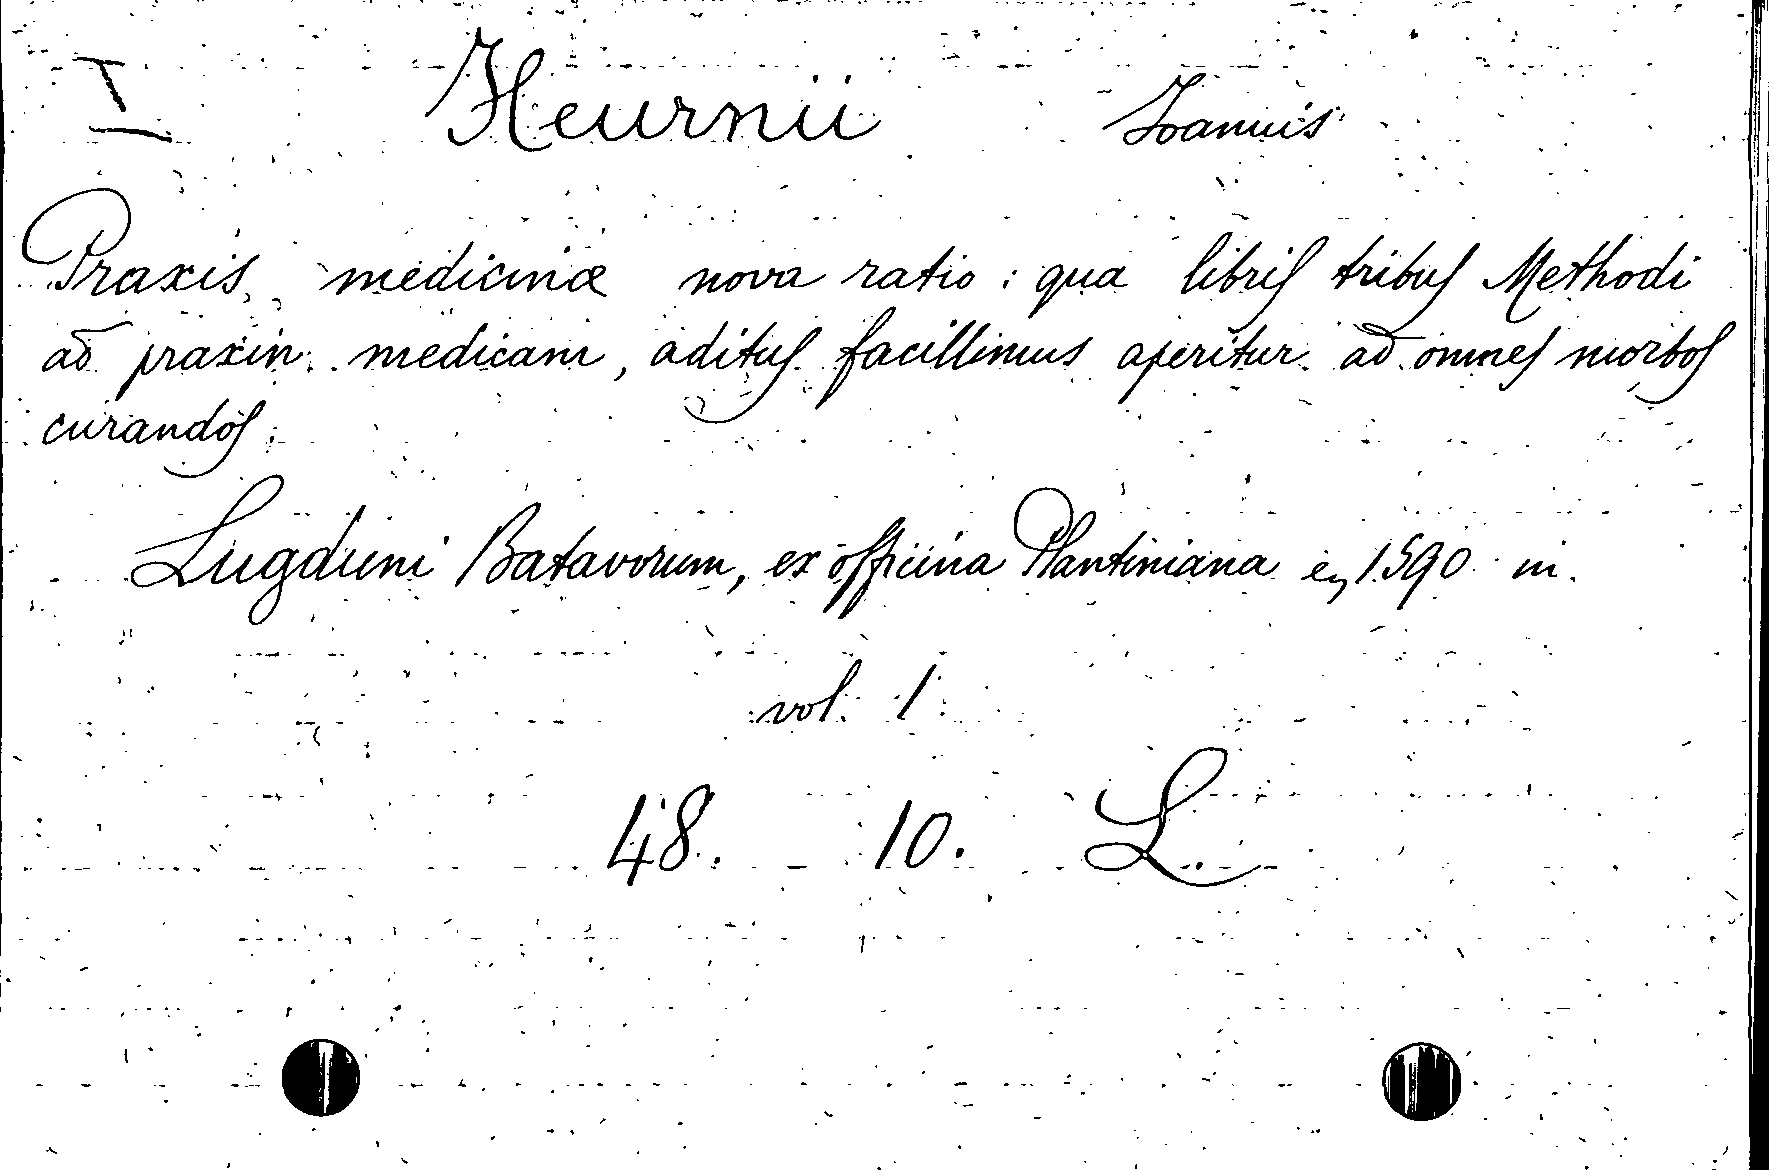 I Heurnii Joannis
Praxis medicinæ nova ratio: qua libris tribus Methodi
ad praxin medicam, aditus facillimus aperitur ad omnes morbos
curandos.
Lugduni Batavorum, ex officina Plantiniana 1590 in.
vol. 1
48. 10. L.